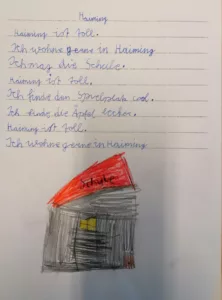 Haiming
Haiming ist toll.
Ich wohne gerne in Haiming
Ich mag die Schule.
Haiming ist toll.
Ich finde den Spielplatz cool.
Ich finde die Äpfel lecker.
Haiming ist toll.
Ich wohne gerne in Haiming
Schule